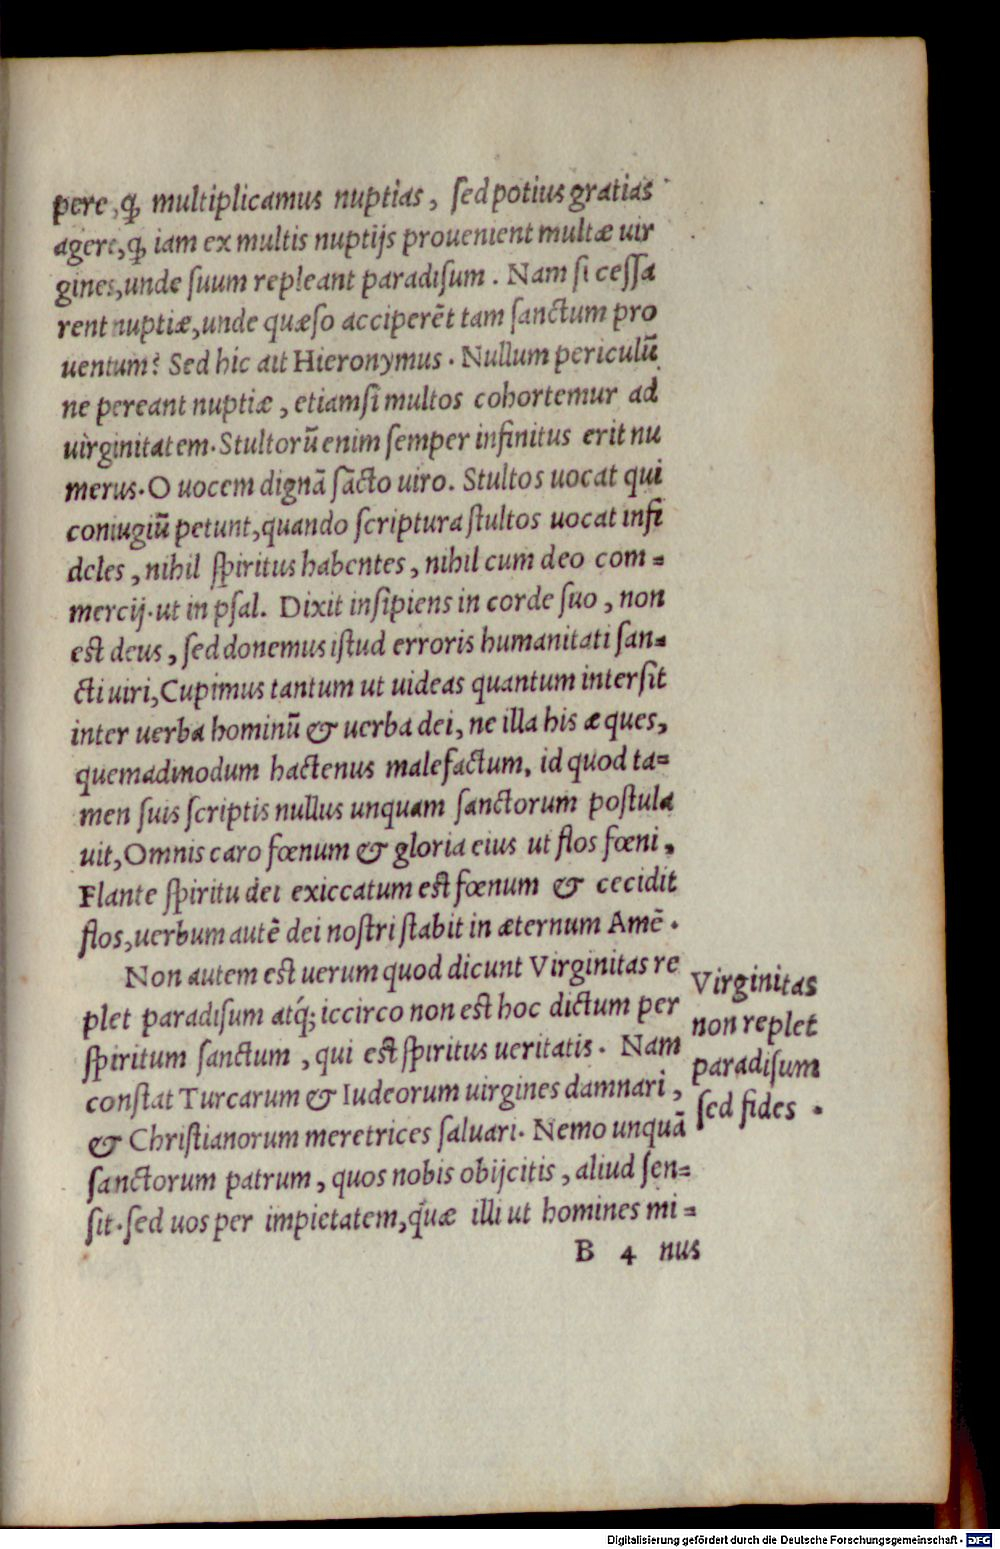 pere, ꝙ multiplicamus nuptias, ſed potius gratias
agere, ꝙ iam ex multis nuptijs prouenient multæ uir
gines, unde ſuum repleant paradiſum. Nam ſi ceſſa
rent nuptiæ, unde quæſo acciperẽt tam ſanctum pro
uentum? Sed hic ait Hieronymus. Nullum periculũ
ne pereant nuptiæ, etiamſi multos cohortemur ad
uirginitatem. Stultorũ enim ſemper infinitus erit nu
merus. O uocem dignã ſãcto uiro. Stultos uocat qui
coniugiũ petunt, quando ſcriptura ſtultos uocat infi
deles, nihil ſpiritus habentes, nihil cum deo com=
mercij. ut in pſal. Dixit inſipiens in corde ſuo, non
est deus, ſed donemus iſtud erroris humanitati ſan=
cti uiri, Cupimus tantum ut uideas quantum interſit
inter uerba hominũ & uerba dei, ne illa his æques,
quemadmodum hactenus malefactum, id quod ta=
men ſuis ſcriptis nullus unquam ſanctorum poſtula
uit, Omnis caro fœnum & gloria eius ut flos fœni,
Flante ſpiritu dei exiccatum est fœnum & cecidit
flos, uerbum autẽ dei noſtri ſtabit in æternum Amẽ.
Non autem est uerum quod dicunt Virginitas re
plet paradiſum atq́; iccirco non est hoc dictum per
ſpiritum ſanctum, qui est ſpiritus ueritatis. Nam
conſtat Turcarum & Iudeorum uirgines damnari,
& Chriſtianorum meretrices ſaluari. Nemo unquã
ſanctorum patrum, quos nobis obijcitis, aliud ſen=
ſit. ſed uos per impietatem, quæ illi ut homines mi=
B 4 nus
Virginitas
non replet
paradiſum
ſed fides.
Digitalisierung gefördert durch die Deutsche Forschungsgemeinschaft - DFG